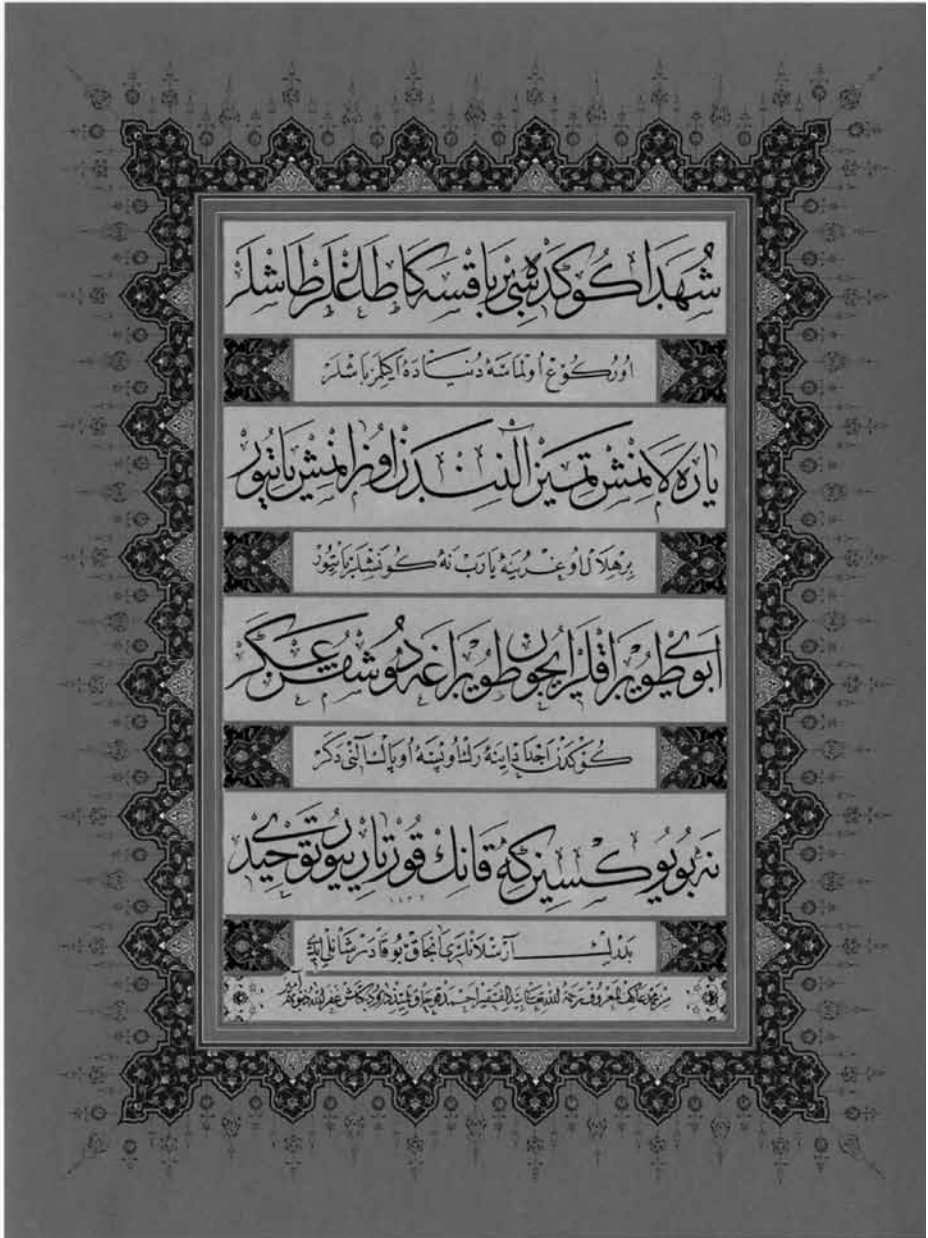 شُهَدَا كَوْدَه‌سِى بِرْ بَاقْسَه‌ڭَا طَاغْلَرْ طَاشْلَرْ
اوْ رُكُوعْ اُولْمَاسَه دُنْيَادَه اَكِلْمَزْ بَاشْلَرْ
يَارَه‌لَانْمِشْ تَمِيزْ آلْنِنْدَنْ اوُزَانْمِشْ يَاتِيُورْ
بِرْ هِلَالْ اُوغْرُينَه يَارَبْ نَه كُونَشْلَرْ بَاتِيُورْ
اَى بُو طُوپْرَاقْلَرْ اِيچُونْ طُوپْرَاغَه دُوشْمُشْ عَسْكَرْ
كُوكْدَنْ اَجْدَادْ اِينَه‌رَكْ اُوپْسَه اُو پَاكْ آلْنِى دَكَرْ
نَه بُويُوكْسِينْ كِه قَانِكْ قُورْتَارِييُورْ تَوْحِيدِى
بَدْرِكْ آرْسْلَانْلَرِى آنْجَاقْ بُو قَادَرْ شَانْلِى اِيدِى